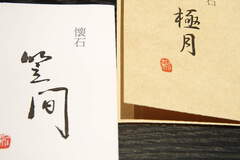 懐石
笠间
石
極月